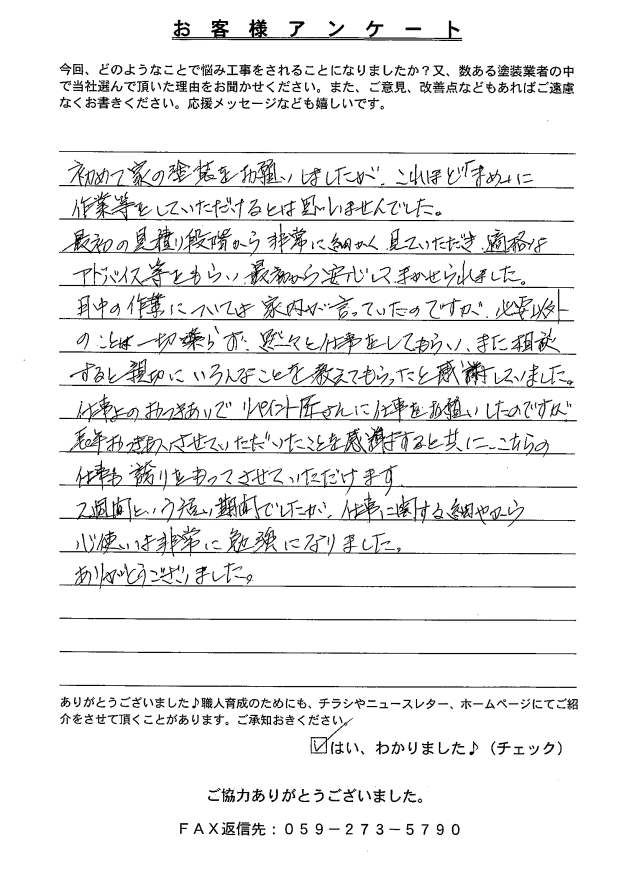 お客様アンケート
今回、どのようなことで悩み工事をされることになりましたか？又、数ある塗装業者の中
で当社選んで頂いた理由をお聞かせください。また、ご意見、改善点などもあればご遠慮
なくお書きください。応援メッセージなども嬉しいです。
初めて家の塗装をお願いしましたが、これほど「まめ」に
作業等をしていただけるとは思いませんでした。
最初の見積り段階から非常に細かく見ていただき、適格な
アドバイス等をもらい、最初から安心してまかせられました。
日中の作業については家内が言っていたのですが、必要以外
のことは一切喋らず、黙々と仕事をしてもらい、また相談
すると親切にいろんなことを教えてもらったと感謝していました。
仕事上のおつきあいで リペイント匠さんに仕事をお願いしたのですが
おつきあいさせていただいたことを感謝すると共に、こちらの
仕事も誇りをもってさせていただけます。
2週間という短い期間でしたが、仕事に関する細やかな
心使いは非常に勉強になりました。
ありがとうございました。
ありがとうございました♪職人育成のためにも、チラシやニュースレター、ホームページにてご紹
介をさせて頂くことがあります。ご承知おきください。
☑はい、わかりました♪（チェック）
ご協力ありがとうございました。
ＦＡＸ返信先：０５９－２７３－５７９０